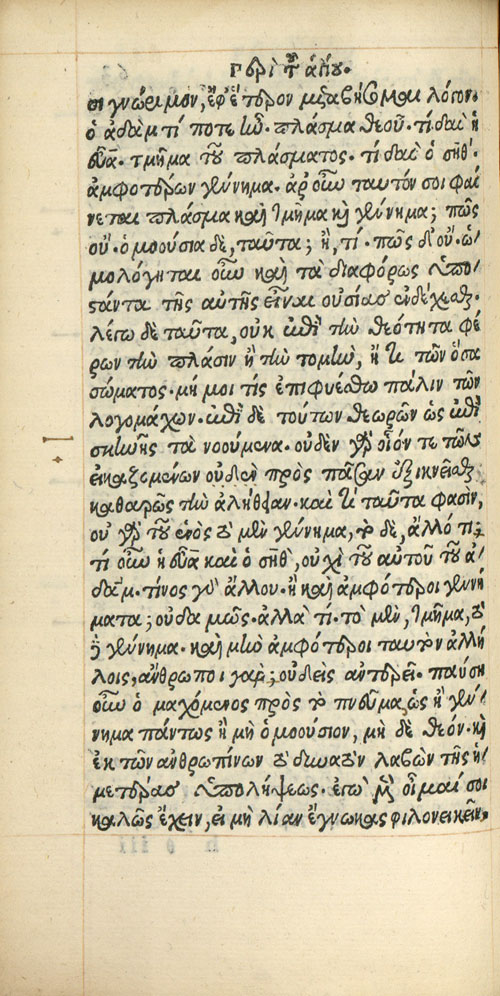 Περὶ τοῦ ἁγίου.
σι γνώριμον, ἐφ' ἕτερον μεταβήσομαι λόγον.
ὁ ἀδὰμ τί ποτε ἦν. πλάσμα θεοῦ. τί δαὶ ἡ
εὔα. τμῆμα τοῦ πλάσματος. τί δαὶ ὁ σήθ.
ἀμφοτέρων γέννημα. ἆρ' οὖν ταυτόν σοι φαί
νεται πλάσμα καὶ τμῆμα καὶ γέννημα; πῶς
οὔ. ὁμοούσια δὲ, ταῦτα; ἢ, τί. πῶς δ' οὔ. ὡ
μολόγηται οὖν καὶ τὰ διαφόρως ὑπο
στάντα τῆς αὐτῆς εἶναι οὐσίας ἐνδέχεσθαι.
λέγω δὲ ταῦτα, οὐκ ἐπὶ τὴν θεότητα φέ
ρων τὴν πλάσιν ἢ τὴν τομὴν, ἤ τι τῶν ὅσα
σώματος. μή μοι τίς ἐπιφυέσθω πάλιν τῶν
λογομάχων. ἐπὶ δὲ τούτων θεωρῶν ὡς ἐπὶ
σκηνῆς τὰ νοούμενα. οὐδὲν γὰρ οἷόν τε τῶν
εἰκαζομένων οὐδὲν πρὸς πᾶσαν ἐξικνεῖσθαι
καθαρῶς τὴν ἀλήθειαν. καὶ τί ταῦτα φασὶν,
οὐ γὰρ τοῦ ἑνὸς τὸ μὲν γέννημα, τὸ δὲ, ἄλλό τι;
τί οὖν ἡ εὔα καὶ ὁ σὴθ, οὐχὶ τοῦ αὐτοῦ τοῦ ἀ
δάμ. τίνος γὰρ ἄλλου. ἢ καὶ ἀμφότεροι γεννή
ματα; οὐδαμῶς. ἀλλὰ τί. τὸ μὲν, τμῆμα, τὸ
δὲ γέννημα. καὶ μὴν ἀμφότεροι ταυτὸν ἀλλή
λοις, ἄνθρωποι γάρ; οὐδεὶς ἀντερεῖ. παύσῃ
οὖν ὁ μαχόμενος πρὸς τὸ πνεῦμα, ὡς ἢ γέν
νημα πάντως ἢ μὴ ὁμοούσιον, μὴ δὲ θεόν. καὶ
ἐκ τῶν ἀνθρωπίνων τὸ δυνατὸν λαβὼν τῆς ἡ
μετέρας ὑπολήψεως. ἐγὼ μὲν οἶμαί σοι
καλῶς ἔχειν, εἰ μὴ λίαν ἔγνωκας φιλονεικεῖν,